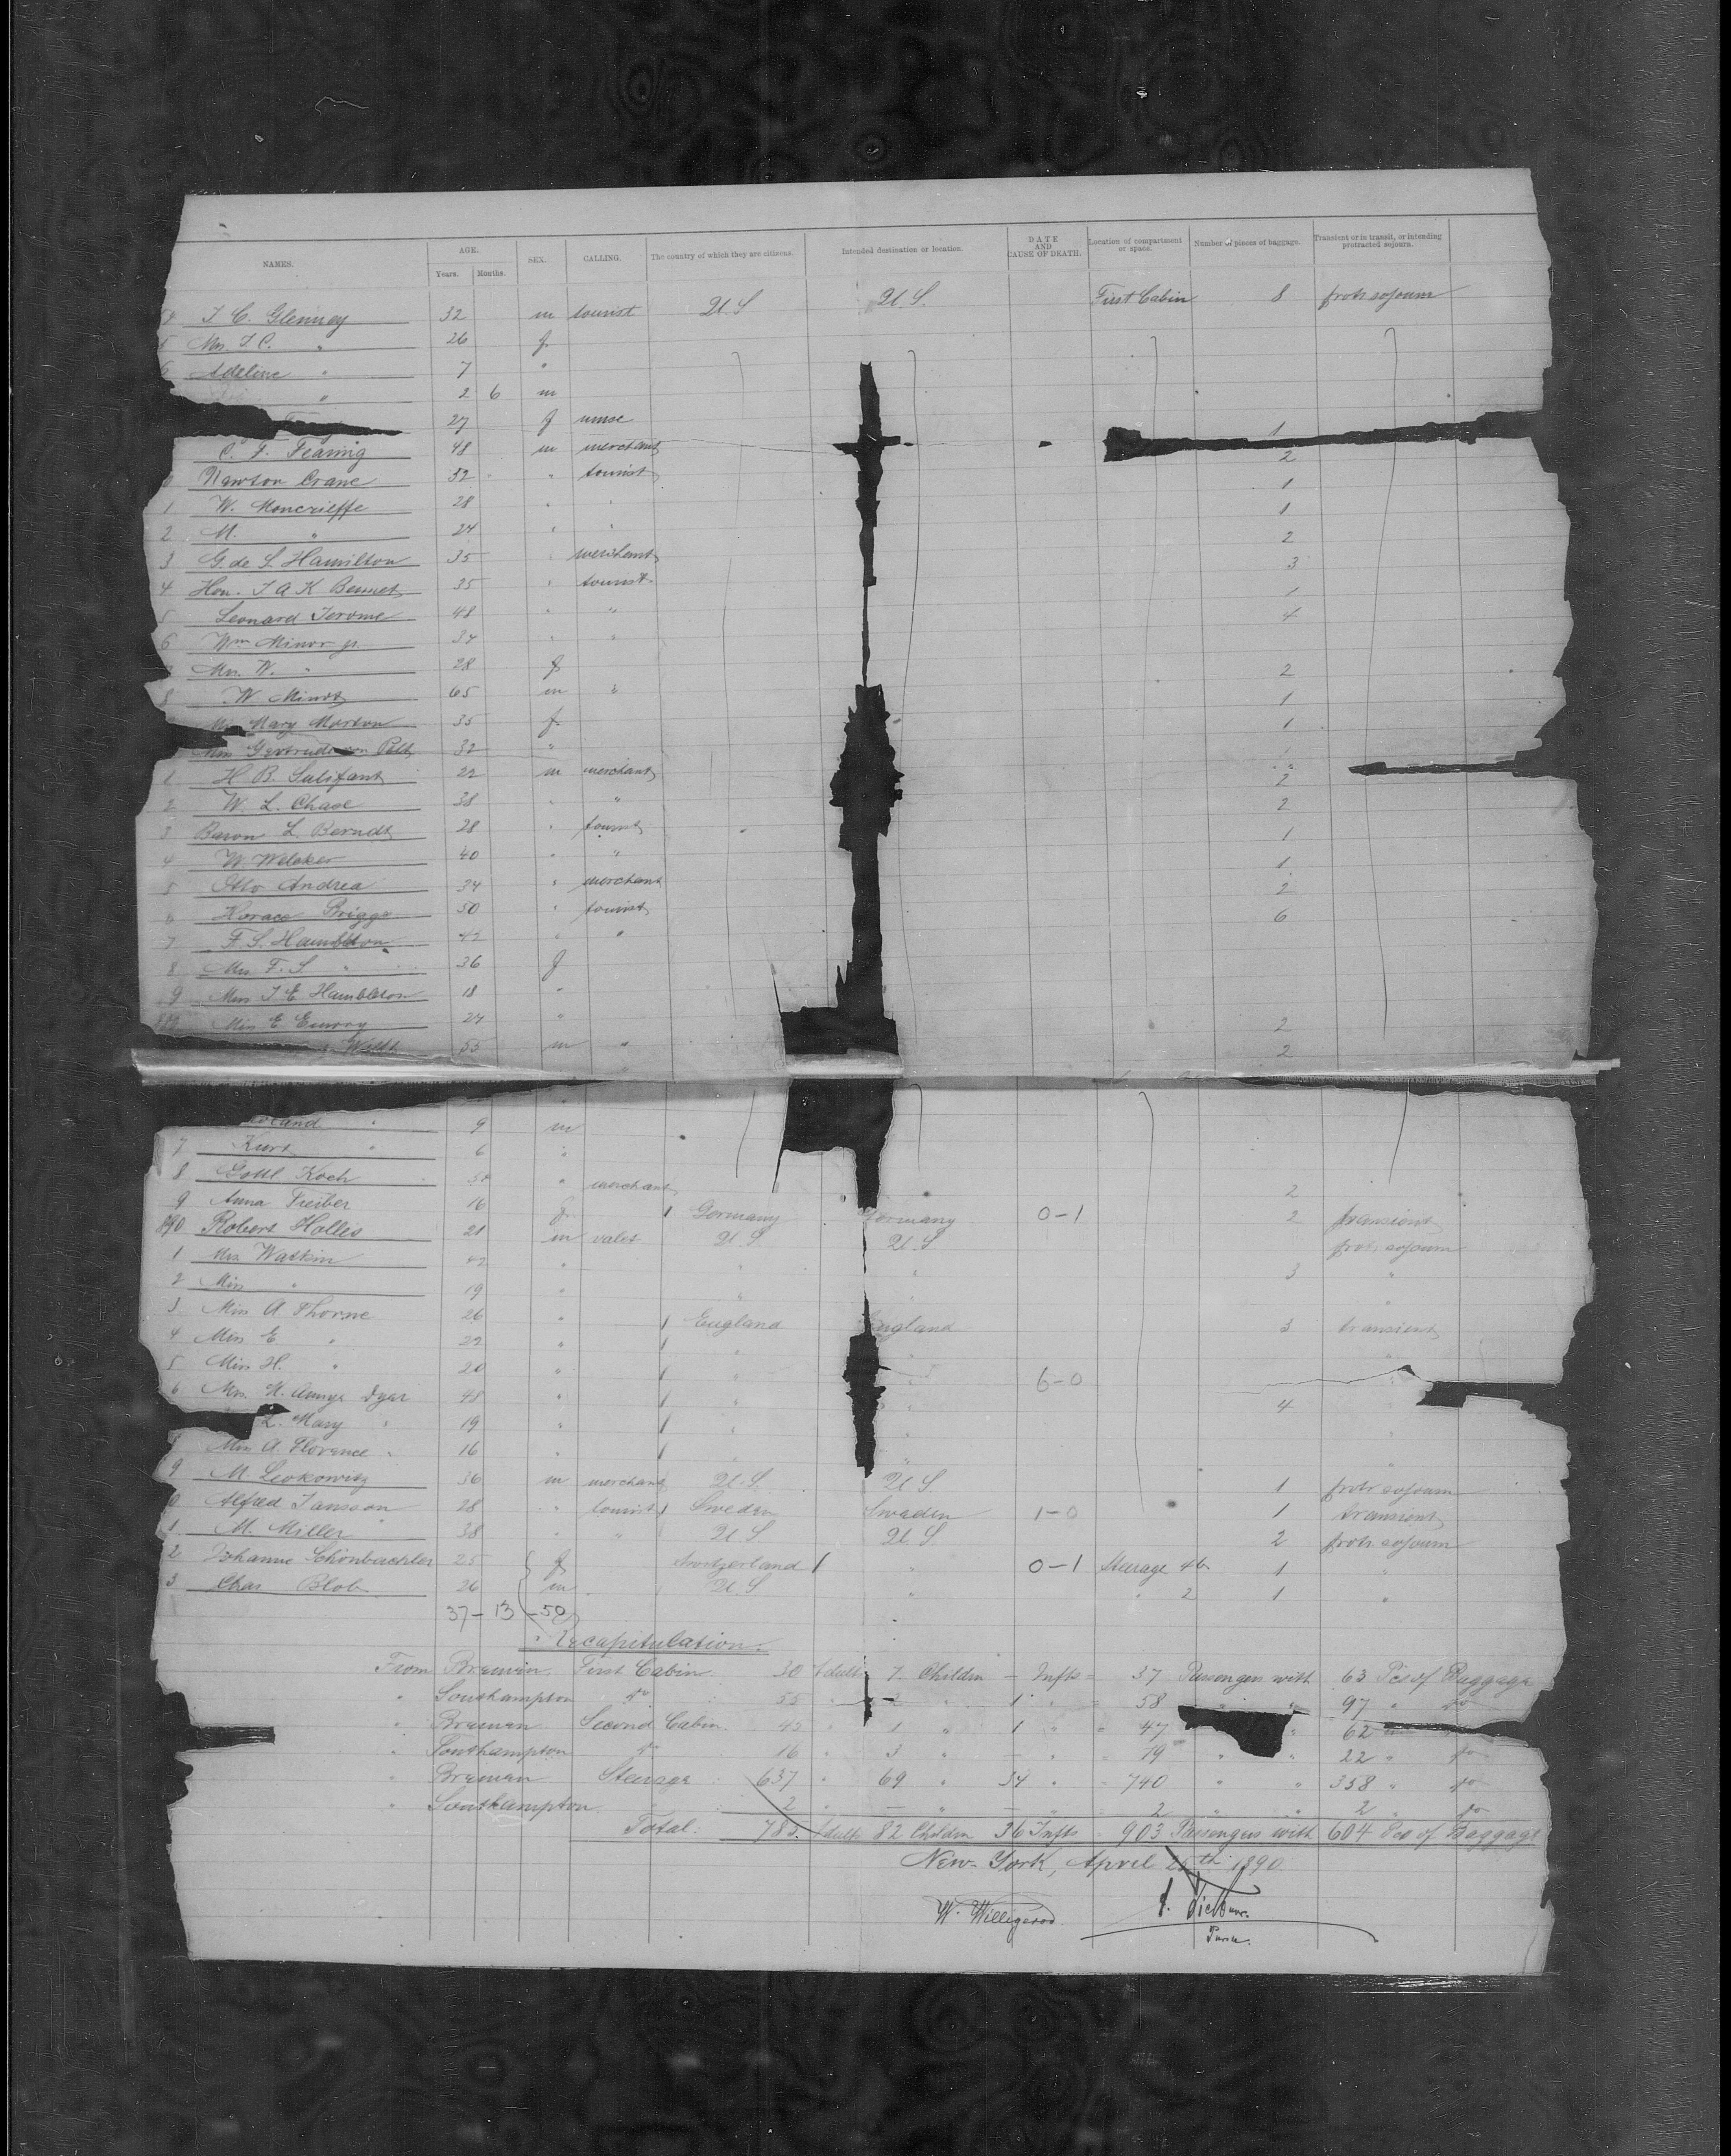 NAMES. AGE. Years. Months. SEX. CALLING. The country of which they are citizens. Intended destination or location. DATE AND CAUSE OF DEATH. Location of compartment or space. Number of pieces of baggage. Transient or in transit, or intending protracted sojourn.
4 J C. Glenney 32 m tourist U S U S. First Cabin 8 protr sojourn
5 Mrs. J. C. " 26 f
6 Adeline " 7 "
" 2 6 m
27 f nurse 1
C. F. Fearing 48 m merchant 2
Newton Crane 32 " tourist 1
1 W. Moncrieffe 28 " " 1
2 M. " 24 " " 2
3 G. de S. Hamilton 35 " merchant 3
4 Hon. J A K Bennet 35 " tourist 1
5 Leonard Jerome 48 " " 4
6 Wm Minor jr 34 " "
Mrs. W. " 28 f 2
8 W Minot 65 m " 1
Mary Morton 35 f 1
Gertrude von Pelt 32 "
1 H B. 22 m merchant 2
2 W. L. Chase 38 " " 2
3 Baron L. Berndt 28 " tourist 1
4 W. Welcker 40 " " 1
5 Otto Andrea 34 " merchant 2
6 Horace Briggs 50 " tourist 6
7 F. S. Hambleton 42 " "
8 Mrs F. S. " 36 f
9 Miss J E Hambleton 18 "
Miss E. Emory 24 " 2
55 m " 2
" 9 m
7 Kurt " 6 "
8 Gottl Koch " merchant 2
9 Anna 16 f 1 Germany Germany 0-1 2 transient
890 Robert Hollis 21 m valet U S U. S protr sojourn
1 Mrs Watkin 42 " " " 3 "
2 Miss " 19 " " " "
3 Miss A Thorne 26 " 1 England England 3 transient
4 Miss E " 22 " 1 " "
5 Miss H. " 20 " 1 " " 6-0
6 Mrs. H. Dyar 48 " 1 " 4
L. Mary " 19 " 1 " " "
Miss A Florence " 16 " 1 " " "
9 M. Lewkowitz 36 m merchant U. S. U S. 1 protr sojourn
0 Alfred Jansson 28 " tourist 1 Sweden Sweden 1-0 1 transient
1 M. Miller 38 " " U S U S 2 protr sojourn
2 Johanne Schönbächler 25 f Switzerland 1 " 0-1 Steerage 46 1 "
3 Chas Blob 26 m U. S " " 2 1 "
37-13-50
Recapitulation.
From Bremen First Cabin 30 Adults 7 Children — Infts = 37 Passengers with 63 Pcs of Baggage
" Southampton do 55 " 2 " 1 " = 58 " " 97 " do
" Bremen Second Cabin. 45 " 1 " 1 " = 47 " 62
" Southampton do 16 " 3 " — " = 19 " " 22 " do
" Bremen Steerage 637 " 69 " 34 " = 740 " " 358 " do
" Southampton " 2 " — " — " = 2 " " 2 " do
Total: 785. Adults 82 Children 36 Infts = 903 Passengers with 604 Pcs of Baggage
New-York, April 25th 1890
W. Willigerod.
Purser.